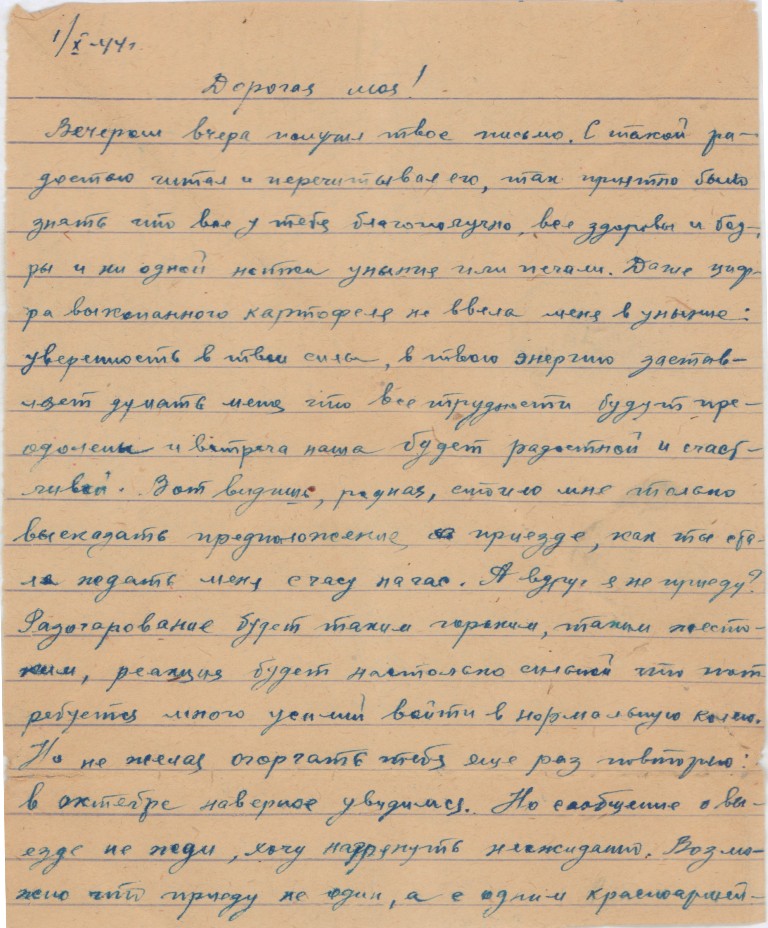 1/X-44г.
Дорогая моя!
Вечером вчера получил твое письмо. С такой ра-
достью читал и перечитывал его, так приятно было
знать что все у тебя благополучно, все здоровы и бод-
ры и ни одной нотки уныния или печали. Даже циф-
ра выкопанного картофеля не ввела меня в уныние:
уверенность в твои силы, в твою энергию застав-
ляет думать меня что все трудности будут пре-
одолены и встреча наша будет радостной и счаст-
ливой. Вот видишь, родная, стоило мне только
высказать предположение о приезде, как ты ста-
ла ждать меня с часу на час. А вдруг я не приеду?
Разочарование будет таким горьким, таким жесто-
ким, реакция будет настолько сильной что пот
ребуется много усилий войти в нормальную колею.
Но не желая огорчать тебя еще раз повторяю:
в октябре наверное увидимся. Но сообщение о вы-
езде не жди, хочу нагрянуть неожиданно. Возмо-
жно что приеду не один, а с одним красноармей-